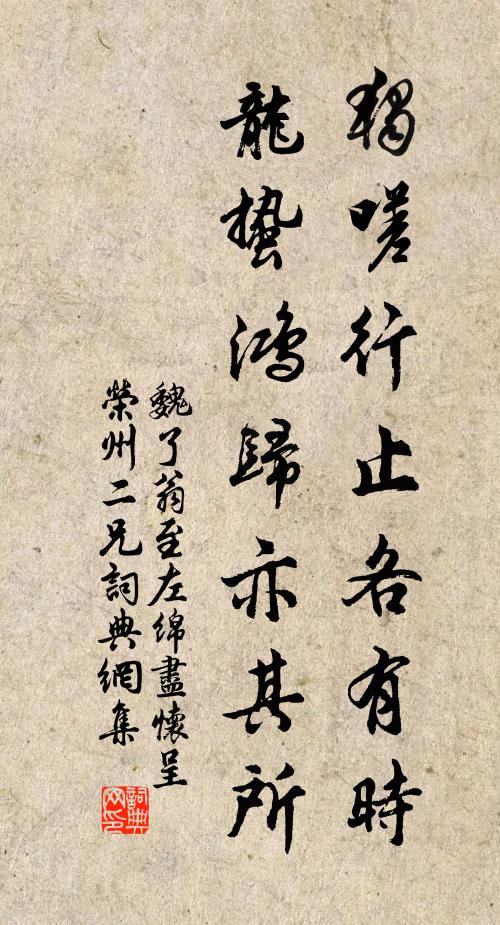 獨嗟行止各有時
龍蟄鴻歸亦其所
魏了翁至左綿盡懷呈
榮州二兄詞典網集
詞典
网印